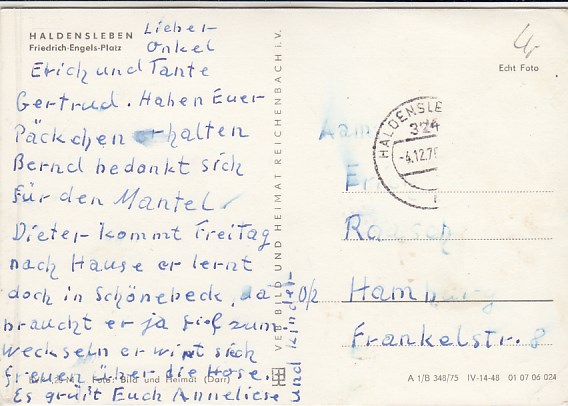 HALDENSLEBEN
Friedrich-Engels-Platz
Lieber
Onkel
Erich und Tante
Gertrud. Haben Euer
Päckchen erhalten
Bernd bedankt sich
für den Mantel
Dieter kommt Freitag
nach Hause er lernt
doch in Schönebeck, da
braucht er ja viel zum
wechseln er wird sich
freuen über die Hose.
Es grüßt Euch Anneliese
und Kinder
Foto: Bild und Heimat (Darr)
VEB BILD UND HEIMAT REICHENBACH I. V.
Echt Foto
HALDENSLE
324
-4.12.75
Hamburg
Frankelstr. 8
A 1/B 348/75 IV-14-48 01 07 06 024